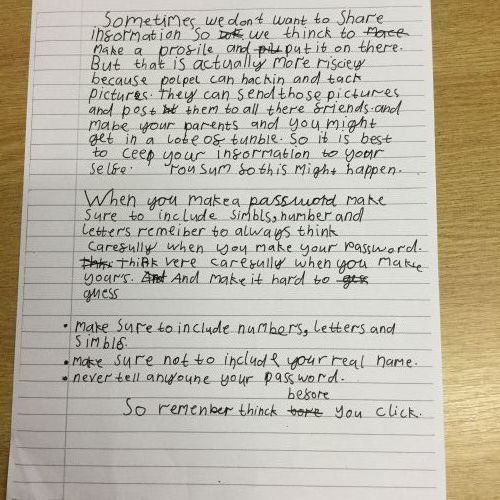 Sometimes we dont want to share
information so we thinck to
make a profile and put it on there.
But that is actually more risciey
because polpel can hackin and tack
pictures. They can send those pictures
and post them to all there friends. and
mabe your parents and you might
get in a lote of tunble. So it is best
to ceep your information to your
selfe. You sum so this might happen.
When you make a password make
sure to include simbls, number and
letters remeiber to always think
carefully when you make your password.
Think vere carefully when you make
yours. And make it hard to
guess
• make sure to include numbers, letters and
simbls.
• make sure not to include your real name.
• never tell anyoune your password.
before
So remember thinck you click.